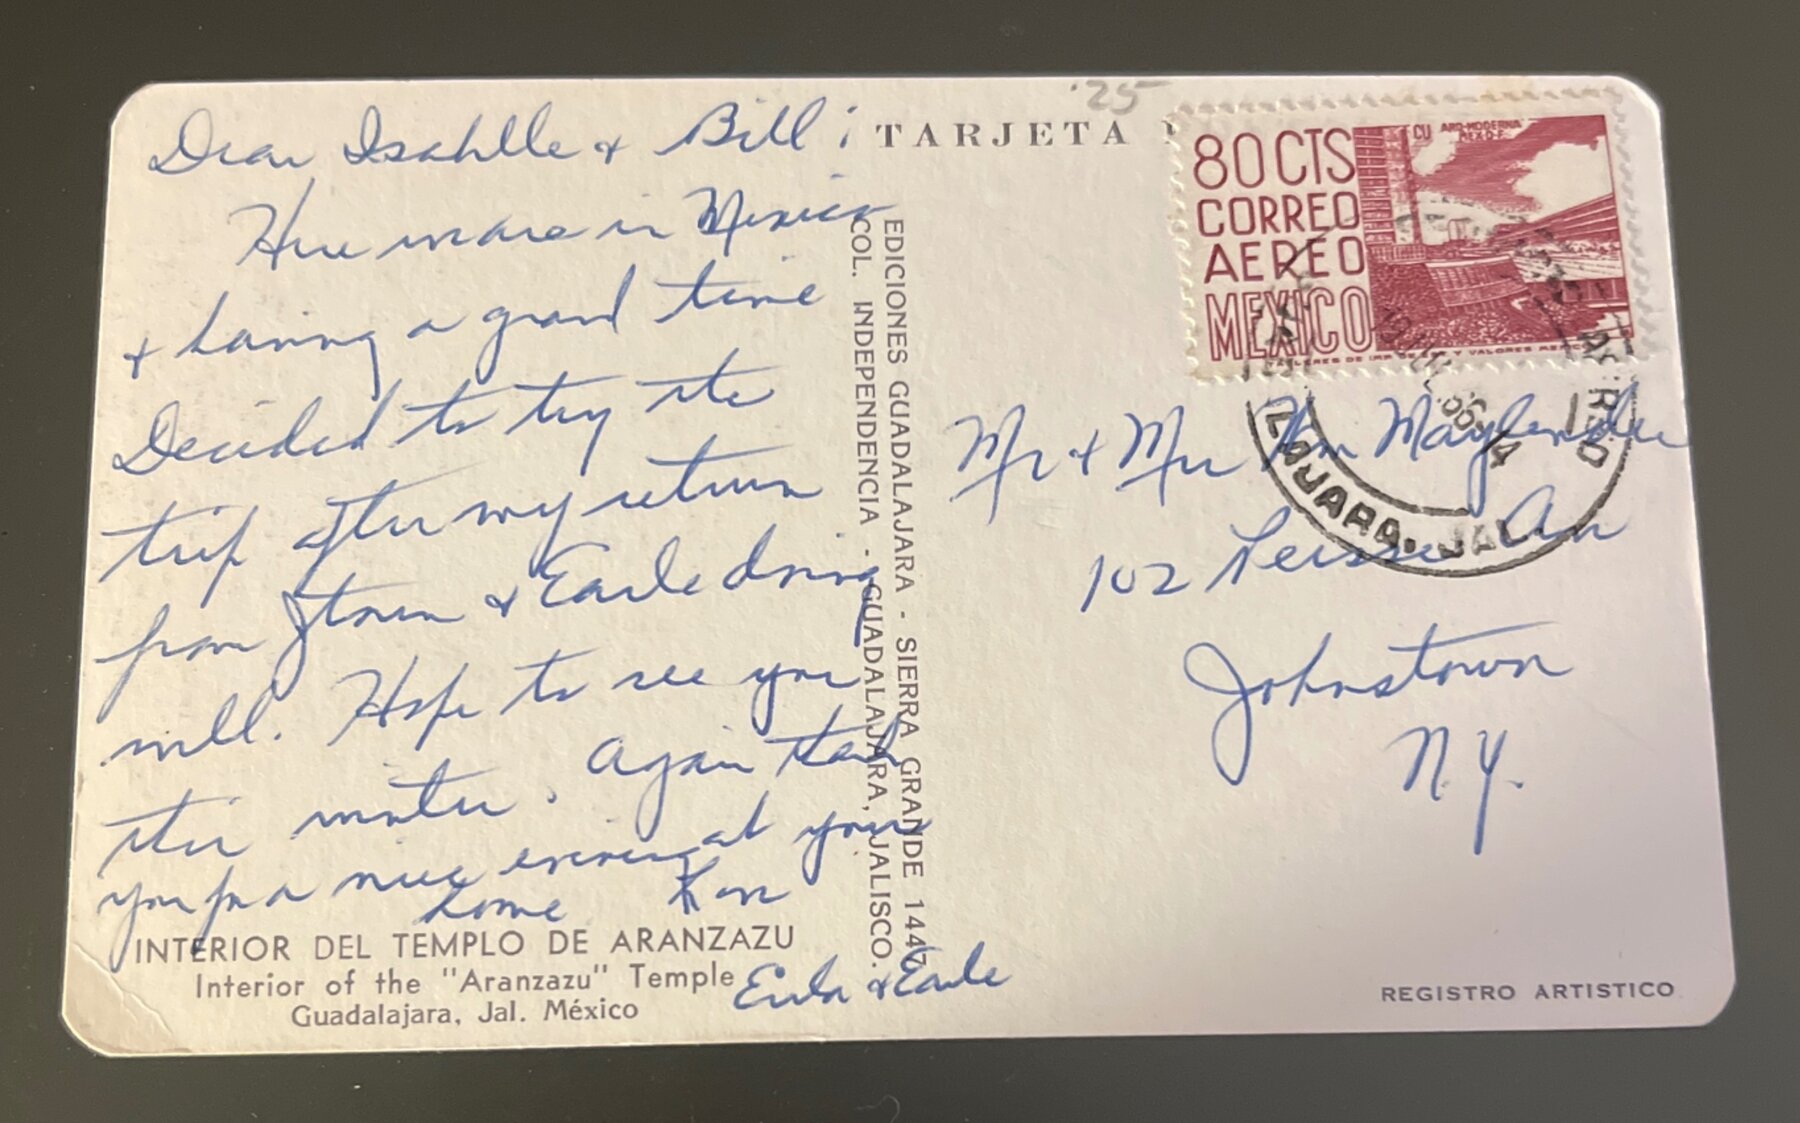 Dear Isabelle & Bill:
Here we are in Mexico
& having a grand time
Decided to try the
trip after my return
from Jtown & Earle doing
well. Hope to see you
this winter. Again thank
you for a nice evening at your
home
Eula & Earle
INTERIOR DEL TEMPLO DE ARANZAZU
Interior of the "Aranzazu" Temple
Guadalajara, Jal. México
EDICIONES GUADALAJARA - SIERRA GRANDE 1447
COL. INDEPENDENCIA - GUADALAJARA, JALISCO.
'25
TARJETA
80 CTS
CORREO
AEREO
MEXICO
CU ARQ. MODERNA
MEX. D.F.
LAJARA, JAL
Mr & Mrs Wm Maylender
102 Ave
Johnstown
N.Y.
REGISTRO ARTISTICO